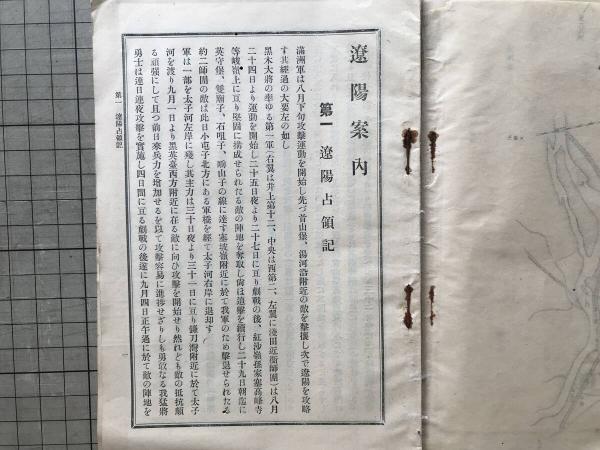 遼陽案內
第一 遼陽占領記
滿洲軍は八月下旬攻擊運動を開始し先づ首山堡、湯河沿附近の敵を擊攘し次で遼陽を攻略
す其經過の大要左の如し
黑木大將の率ゆる第一軍(右翼は井上第十二、中央は西第二、左翼に淺田近衞師團)は八月
二十四日より運動を開始し二十五日夜より二十七日に亘り劇戰の後、紅沙嶺孫家塞高峰寺
等峻嶺上に亘り堅固に構成せられたる敵の陣地を奪取し尙ほ追擊を續行し二十九日朝迄に
英守堡、雙廟子、石咀子、鳴山子の線に達す寒坡嶺附近に於て我軍のため擊退せられたる
約二師團の敵は此日小屯子北方にある軍橋を經て太子河右岸に退却す
軍は一部を太子河左岸に殘し其主力は三十日夜より三十一日に亘り鎌刀灣附近に於て太子
河を渡り九月一日より黑英臺西方附近に在る敵に向ひ攻擊を開始せり然れども敵の抵抗頗
る頑强にして且つ前日來兵力を增加せるを以て攻擊容易に進捗せざりしも勇敢なる我猛將
勇士は連日連夜攻擊を實施し四日間に亘る劇戰の後遂に九月四日正午過に於て敵の陣地を
第一 遼陽占領記
一